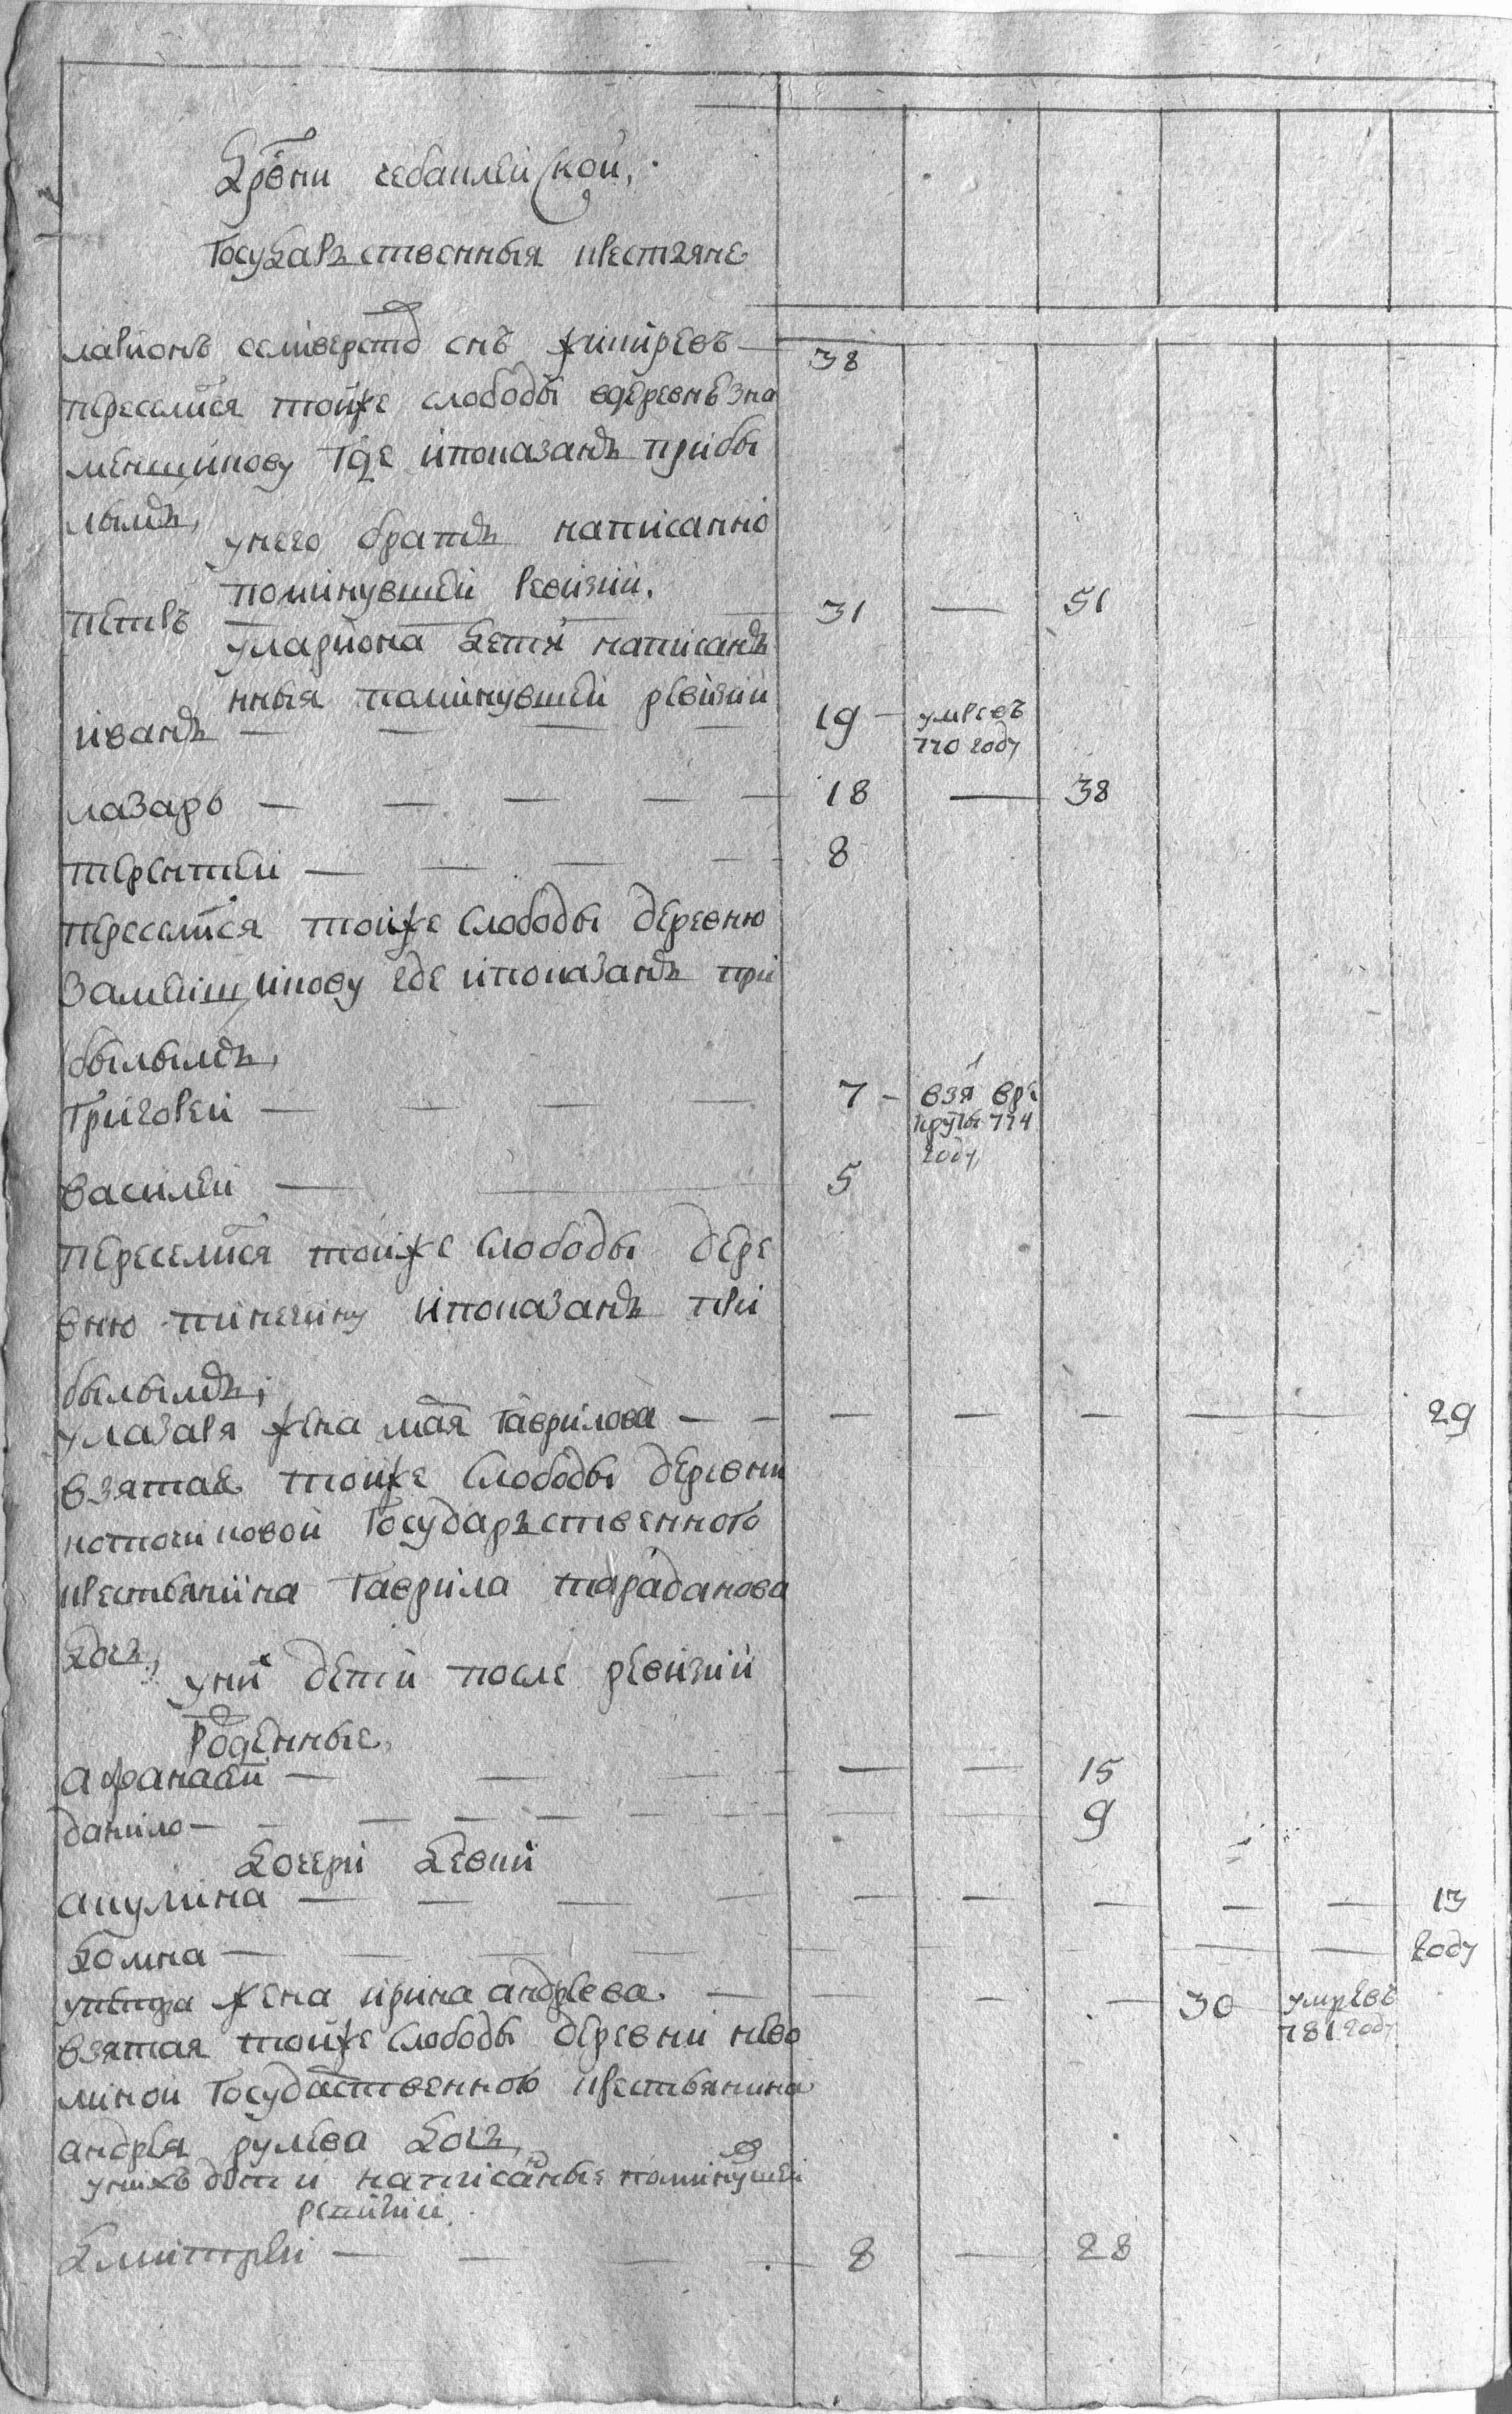 Дрвни чебаклейской,
Государъственныя крестяне
ларионъ селиверстов снъ жишревъ — 38
переселися тойже слободы вдеревнѣ зна
менщикову где ипоказанъ прибы
лымъ,
унего братъ написанно
поминувшей ревизии.
петръ 31 — 51
улариона дети написанъ
нныя поминувшей ревизии
иванъ — — — — 19 — умревъ 770 году
лазарь — — — — — 18 — 38
терентей — — — — 8
переселися тойже слободы деревню
где ипоказанъ при
былымъ,
григорей — — — — 7 — взя вре круты 774 году
василей — — 5
переселися тойже слободы дере
вню ипоказанъ при
былымъ,
улазаря жена мая гаврилова — — — — — — — 29
взятая тойже слободы деревни
государъственного
крестьянина гаврила тарабанова
дочь,
уни дети после ревизии
роденные,
афанасей — — — — — — 15
данило — — — — — — — — — 9
дочери девки
акулина — — — — — — — — — 13
домна — — — — — — — — — году
упетра жена ирина андреева — — — — 30 умревъ 781 году
взятая тойже слободы деревни
государственного крестьянина
андрея дочь,
унихъ дети написаныя поминушей
ревизии.
дмитрей — — — — 8 — 28